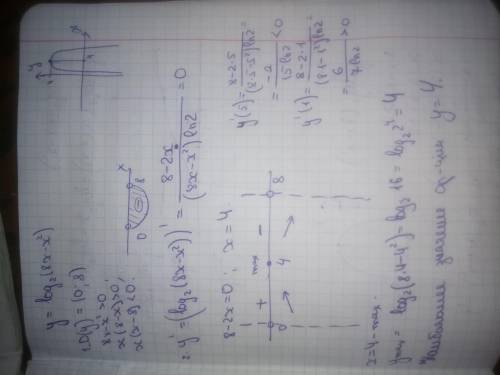 y = log₂(8x-x²)
1. D(y) = (0; 8)
8x-x²>0
x(8-x)>0;
x(x-8)<0.
0 8 x
y
x
4
4
2. y' = (log₂(8x-x²))' = (8-2x)/((8x-x²) ln2) = 0
8-2x=0; x=4.
+ max -
0 4 8
y'(5) = (8-2·5)/((8·5-5²) ln2) =
= -2/(15 ln2) < 0
y'(1) = (8-2·1)/((8·1-1²) ln2) =
= 6/(7 ln2) > 0
x=4-max.
y max = log₂(8·4-4²) = log₂ 16 = log₂ 2⁴ = 4
Наибольшее значение ф-ции y=4.